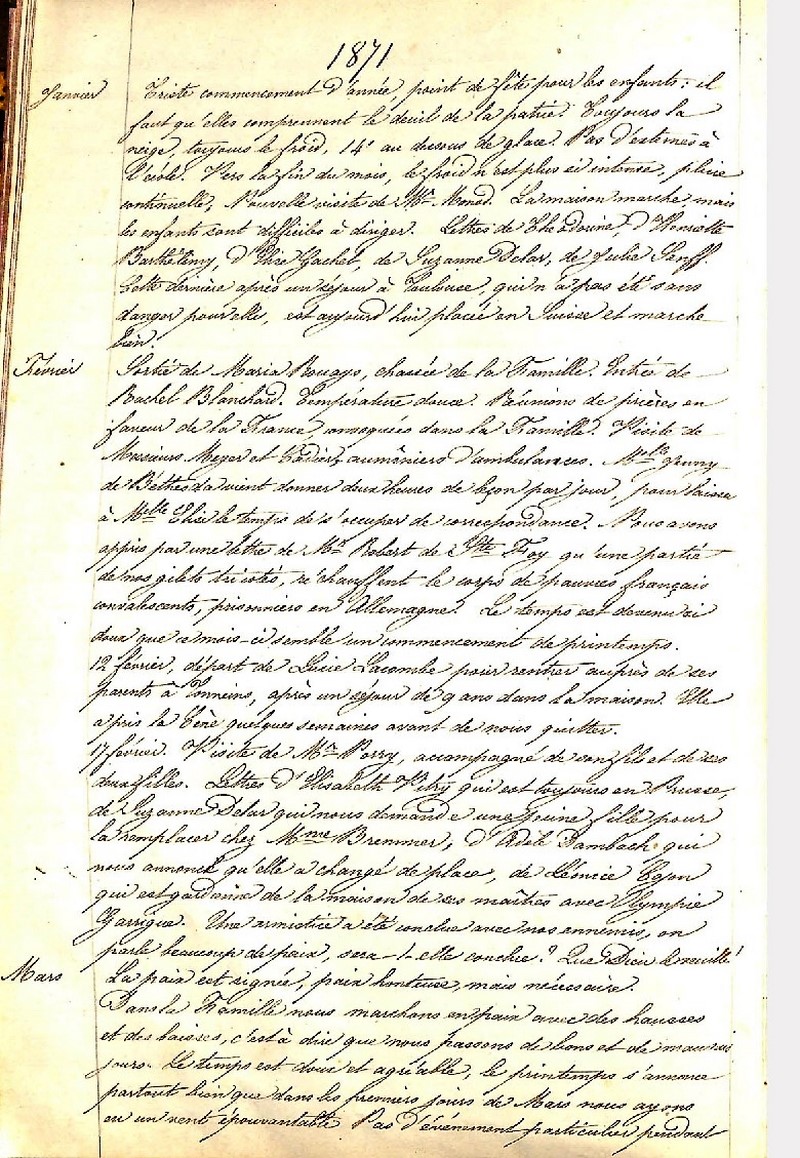 1871
Janvier Triste commencement d'année, point de fête pour les enfants: il
faut qu'elles comprennent le deuil de la patrie. Toujours la
neige, toujours le froid, 14° au dessous de glace. Pas d'externes à
l'école. Vers la fin du mois, le froid n'est plus si intense, pluie
continuelle, Nouvelle visite de Mr Monod. La maison marche mais
les enfants sont difficiles à diriger. Lettres de Théodorine, d'Henriette
Barthélémy, d'Elise Gachet, de Suzanne Delar, de Julie
Cette dernière après un séjour à Toulouse, qui n'a pas été sans
danger pour elle, est aujourd'hui placée en Suisse et marche
bien.
Février Sortie de Maria Rouays, chassée de la Famille. Entrée de
Rachel Blanchard. Température douce. Réunions de prières en
faveur de la France, annoncées dans la Famille. Visite de
Messieurs Meyer et Cadier, aumôniers d'ambulances. Mlle Jenny
de Béthesda vient donner deux heures de leçon par jour, pour laisser
à Melle Elise le temps de s'occuper de correspondance. Nous avons
appris par une lettre de Mr Robert de Ste Foy qu'une partie
de nos gilets tricotés, réchauffent le corps de pauvres français
convalescents, prisonniers en Allemagne. Le temps est devenu si
doux que ce mois-ci semble un commencement de printemps.
12 février, départ de Lucie Lacombe pour rentrer auprès de ses
parents à Tonneins, après un séjour de 9 ans dans la maison. Elle
a pris la Cène quelques semaines avant de nous quitter.
17 février. Visite de Mr Porry, accompagné de son fils et de ses
deux filles. Lettres d'Elisabeth Vitry qui est toujours en Prusse,
de Suzanne Delar qui nous demande une jeune fille pour
la remplacer chez Mme Bremmer, d'Adèle Dambach qui
nous annonce qu'elle a changé de place, de Léonie
qui est gardienne de la maison de ses maîtres avec Olympie
Garrigue. Une armistice a été conclue avec nos ennemis, on
parle beaucoup de paix, sera-t-elle conclue? Que Dieu le veuille!
Mars La paix est signée, paix honteuse, mais nécessaire.
Dans la Famille nous marchons en paix avec des hausses
et des baisses, c'est à dire que nous passons de bons et de mauvais
jours. Le temps est doux et agréable, le printemps s'annonce
partout bien que dans les premiers jours de Mars nous ayons
eu un vent épouvantable. Pas d'événement particulier pendant